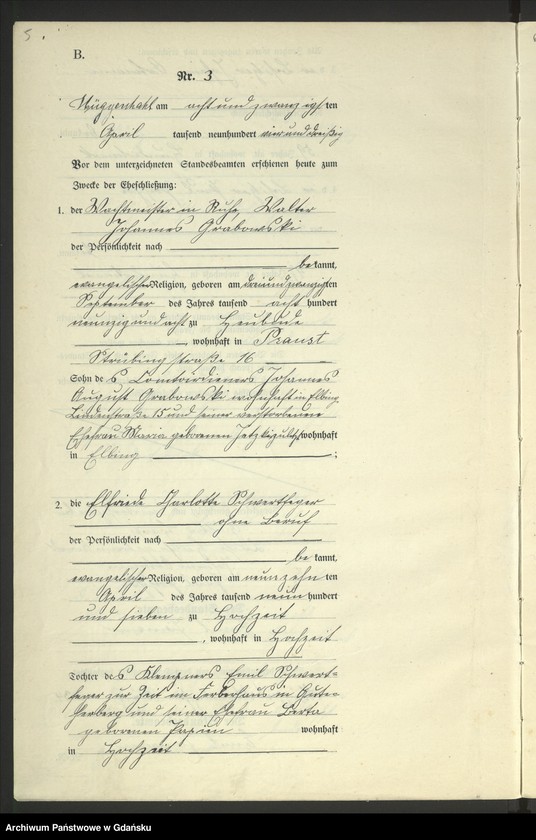 5.
B.
Nr. 3
Müggenhahl am acht und zwanzigsten
April tausend neunhundert vier und dreißig
Vor dem unterzeichneten Standesbeamten erschienen heute zum
Zwecke der Eheschließung:
1. der Wachtmeister in Ruhe, Walter
Johannes Grabowski
der Persönlichkeit nach
bekannt,
evangelischer Religion, geboren am drei und zwanzigsten
September des Jahres tausend acht hundert
neunzig und acht zu Heubude
, wohnhaft in Praust
Strübing straße 16
Sohn des Comtoirdieners Johannes
August Grabowski wohnhaft in Elbing,
Lindenstraße 15 und seiner verstorbenen
Ehefrau Maria geborenen zuletzt wohnhaft
in Elbing ;
2. die Elfriede Charlotte Schwertfeger
ohne Beruf
der Persönlichkeit nach
bekannt,
evangelischer Religion, geboren am neunzehn ten
April des Jahres tausend neun hundert
und sieben zu Hochzeit
, wohnhaft in Hochzeit
Tochter des Klempners Emil Schwert=
feger zur Zeit im Ferberhaus in Gute=
herberg und seiner Ehefrau Berta
geborenen Papien wohnhaft
in Hochzeit
Archiwum Państwowe w Gdańsku